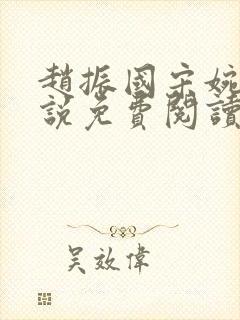 趙振國宋婉
說免費閱讀
吴效偉